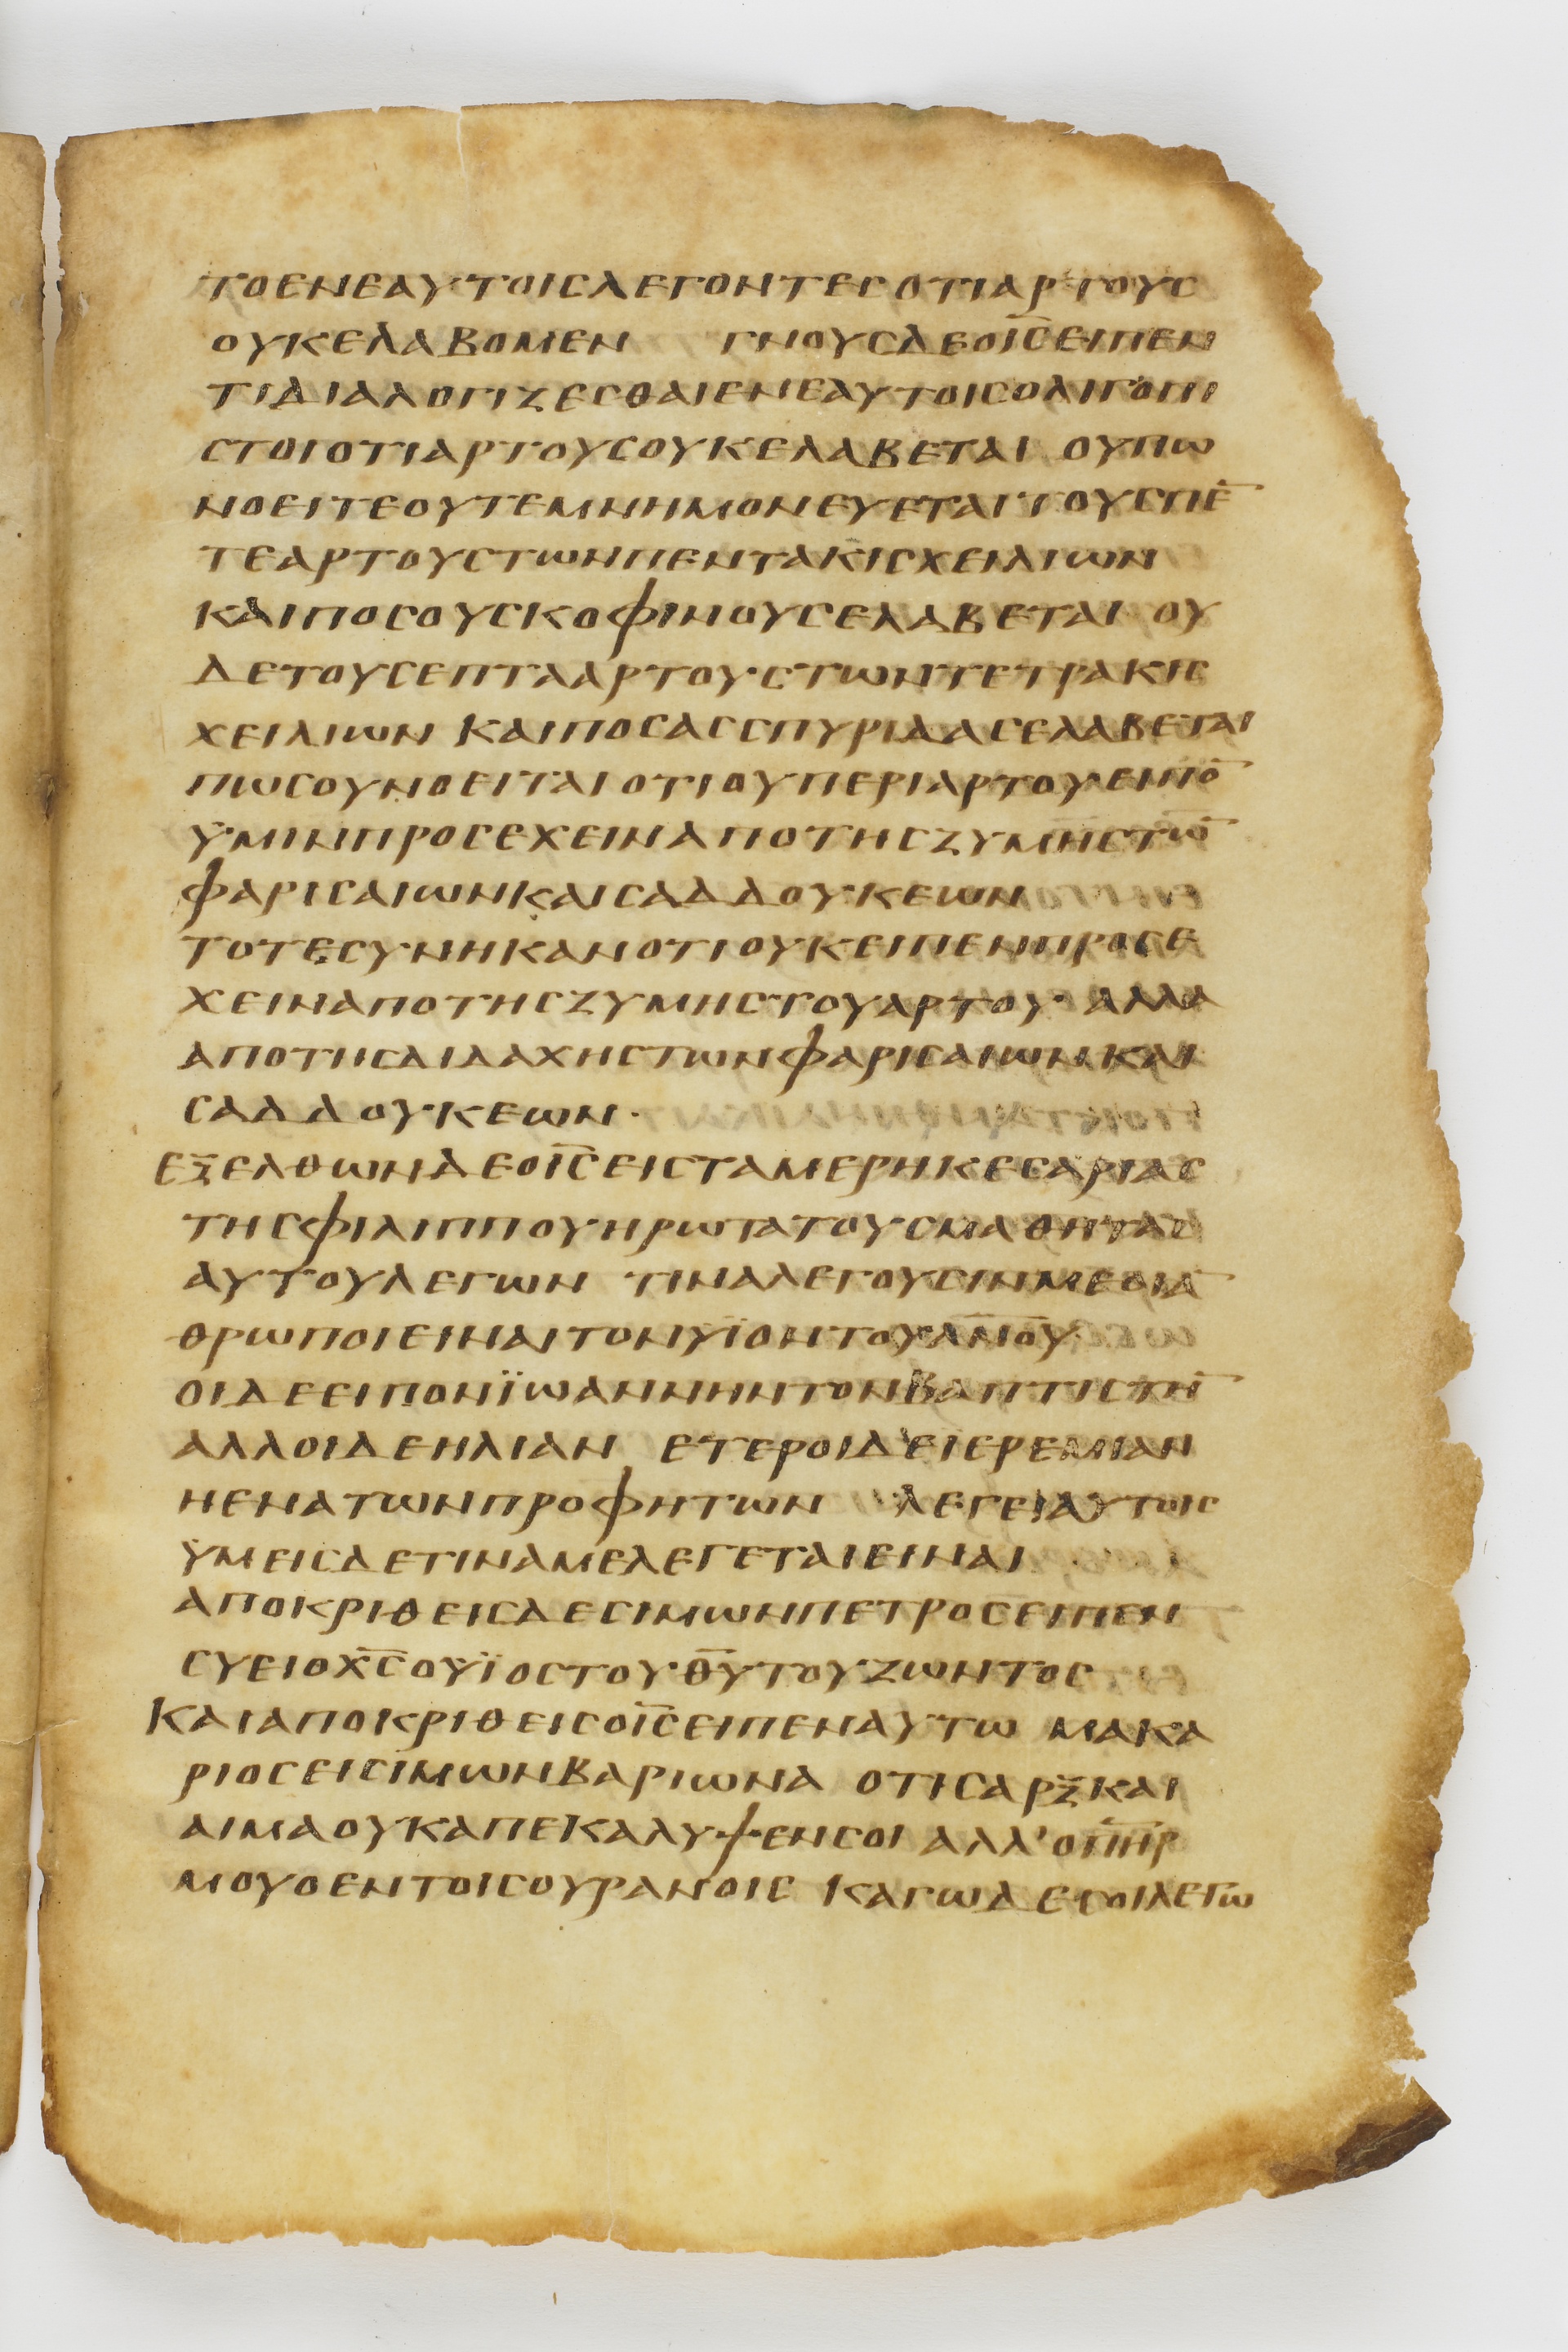 ΤΟΕΝΕΑΥΤΟΙΣΛΕΓΟΝΤΕΣΟΤΙΑΡΤΟΥΣ
ΟΥΚΕΛΑΒΟΜΕΝ ΓΝΟΥΣΔΕΟΙ̅Σ̅ΕΙΠΕΝ
ΤΙΔΙΑΛΟΓΙΖΕΣΘΑΙΕΝΕΑΥΤΟΙΣΟΛΙΓΟΠΙ
ΣΤΟΙΟΤΙΑΡΤΟΥΣΟΥΚΕΛΑΒΕΤΑΙ ΟΥΠΩ
ΝΟΕΙΤΕΟΥΤΕΜΝΗΜΟΝΕΥΕΤΑΙΤΟΥΣΠΕ̅
ΤΕΑΡΤΟΥΣΤΩΝΠΕΝΤΑΚΙΣΧΕΙΛΙΩΝ
ΚΑΙΠΟΣΟΥΣΚΟΦΙΝΟΥΣΕΛΑΒΕΤΑΙ ΟΥ
ΔΕΤΟΥΣΕΠΤΑΑΡΤΟΥΣΤΩΝΤΕΤΡΑΚΙΣ
ΧΕΙΛΙΩΝ ΚΑΙΠΟΣΑΣΣΠΥΡΙΔΑΣΕΛΑΒΕΤΑΙ
ΠΩΣΟΥΝΟΕΙΤΑΙΟΤΙΟΥΠΕΡΙΑΡΤΟΥΕΙΠΟ̅
ΥΜΙΝΠΡΟΣΕΧΕΙΝΑΠΟΤΗΣΖΥΜΗΣΤΩ̅
ΦΑΡΙΣΑΙΩΝΚΑΙΣΑΔΔΟΥΚΕΩΝ
ΤΟΤΕΣΥΝΗΚΑΝΟΤΙΟΥΚΕΙΠΕΝΠΡΟΣΕ
ΧΕΙΝΑΠΟΤΗΣΖΥΜΗΣΤΟΥΑΡΤΟΥ ΑΛΛΑ
ΑΠΟΤΗΣΔΙΔΑΧΗΣΤΩΝΦΑΡΙΣΑΙΩΝΚΑΙ
ΣΑΔΔΟΥΚΕΩΝ·
ΕΞΕΛΘΩΝΔΕΟΙ̅Σ̅ΕΙΣΤΑΜΕΡΗΚΕΣΑΡΙΑΣ
ΤΗΣΦΙΛΙΠΠΟΥΗΡΩΤΑΤΟΥΣΜΑΘΗΤΑΣ
ΑΥΤΟΥΛΕΓΩΝ ΤΙΝΑΛΕΓΟΥΣΙΝΜΕΟΙΑ̅
ΘΡΩΠΟΙΕΙΝΑΙΤΟΝΥΪΟΝΤΟΥΑ̅Ν̅Ο̅Υ̅
ΟΙΔΕΕΙΠΟΝΪΩΑΝΝΗΝΤΟΝΒΑΠΤΙΣΤΗ̅
ΑΛΛΟΙΔΕΗΛΙΑΝ ΕΤΕΡΟΙΔΕΙΕΡΕΜΙΑΝ
ΗΕΝΑΤΩΝΠΡΟΦΗΤΩΝ ΛΕΓΕΙΑΥΤΟΙΣ
ΥΜΕΙΣΔΕΤΙΝΑΜΕΛΕΓΕΤΑΙΕΙΝΑΙ
ΑΠΟΚΡΙΘΕΙΣΔΕΣΙΜΩΝΠΕΤΡΟΣΕΙΠΕΝ
ΣΥΕΙΟΧ̅Σ̅ΟΥΪΟΣΤΟΥΘ̅Υ̅ΤΟΥΖΩΝΤΟΣ
ΚΑΙΑΠΟΚΡΙΘΕΙΣΟΙ̅Σ̅ΕΙΠΕΝΑΥΤΩ ΜΑΚΑ
ΡΙΟΣΕΙΣΙΜΩΝΒΑΡΙΩΝΑ ΟΤΙΣΑΡΞΚΑΙ
ΑΙΜΑΟΥΚΑΠΕΚΑΛΥΨΕΝΣΟΙ ΑΛΛ'ΟΠ̅Η̅Ρ̅
ΜΟΥΟΕΝΤΟΙΣΟΥΡΑΝΟΙΣ ΚΑΓΩΔΕΣΟΙΛΕΓΩ